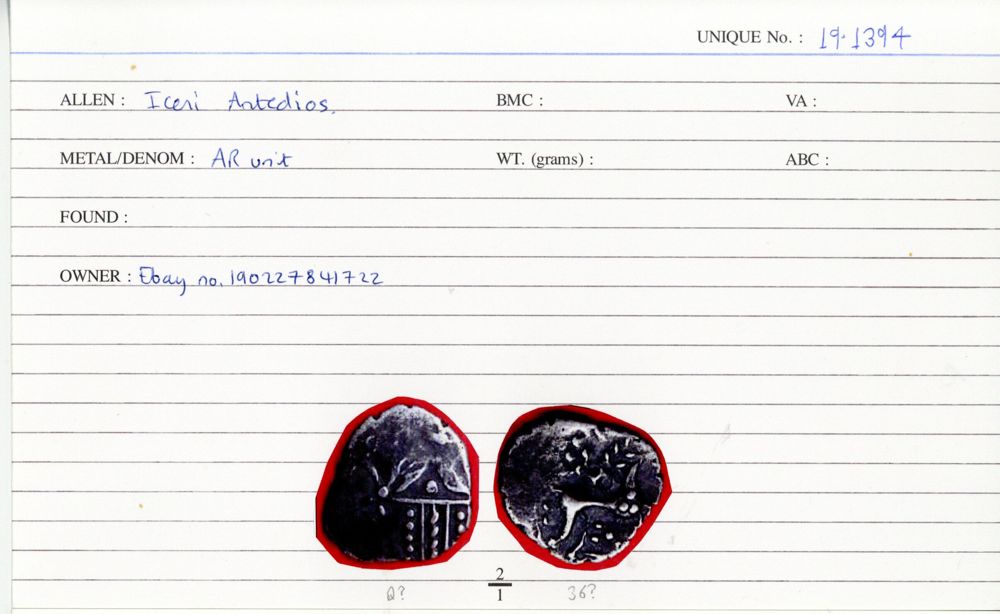 UNIQUE No. : 19.1394
ALLEN : Iceni Antedios. BMC : VA :
METAL/DENOM : AR unit WT. (grams) : ABC :
FOUND :
OWNER : Ebay no. 190227841722
2
1
Q? 36?